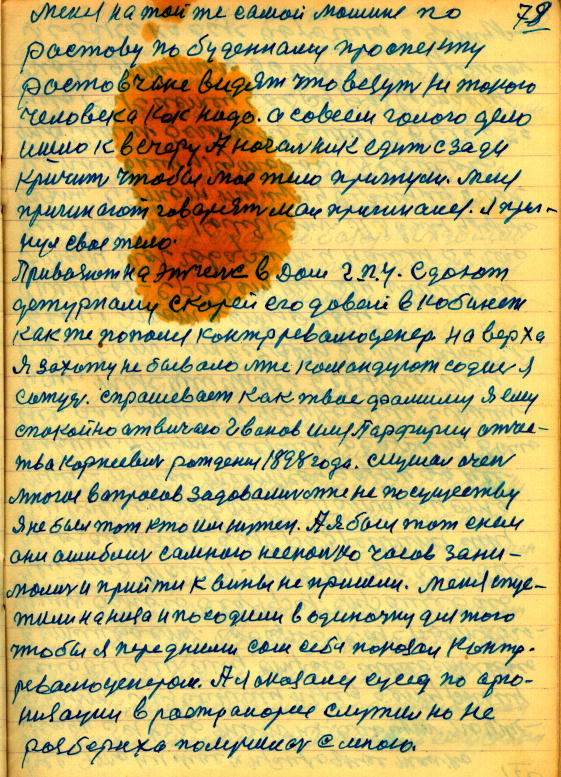 меня на той же самой мошине по 78
ростову по буденнаму проспекту
ростовчане видят что везут не такого
человека как надо. а совсем голого дело
ишло к вечеру А началник едит сзади
кричит чтобы мое тело пригнули. меня
пригинают говарят мои пригинаися. я приг-
нул свое тело.
Привозют на в Дом Г.П.У. сдают
дежурнаму скорей его довай в кобинет
как же попали контрреволюценер. на верха
я захожу не бывало мне командуют содис я
сежу. спрашевает как твае фамилия я ему
спокойно атвичаю Иванов имя Парфирий отчес-
тва Корнеевич рождения 1898 года. слушал очен
многа вапросов задовали мне не посуществу
я не был тот кто им нужен. А я был тот с кем
они ошиблис самною несколко часов зани-
молис и прийти к вины не пришли. меня спус-
тили на низ и посодили в одиночку для того
чтобы я перед ними сам себя показал контр-
революценером. А я оказалси сусед по арга-
низации в растранорпе служил но не
разбериха получилас с мною.